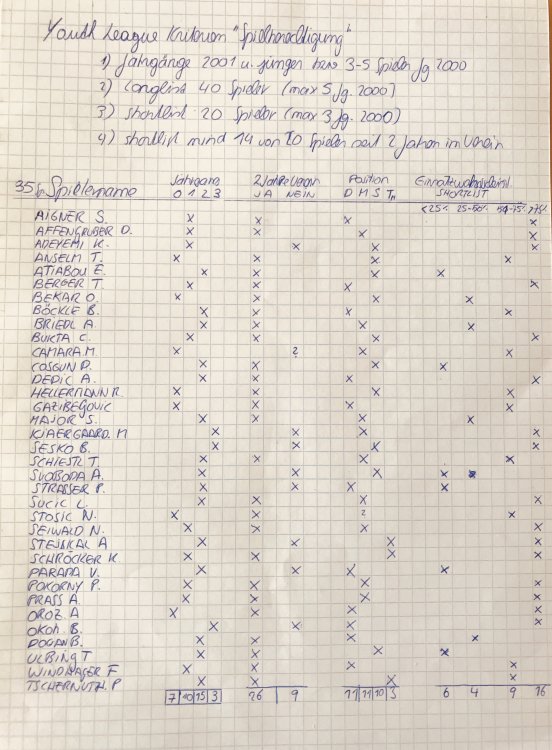 Youth League Kriterien "Spielberechtigung"
1) Jahrgänge 2001 u. jünger bzw 3-5 Spieler Jg 2000
2) Longlist 40 Spieler (max 5 Jg. 2000)
3) Shortlist 20 Spieler (max 3 Jg. 2000)
4) Shortlist mind 14 von 20 Spielern seit 2 Jahren im Verein
35 Spielername Jahrgang 2 Jahre Verein Position SHORTLIST
0 1 2 3 JA NEIN D M S <25% 25-50% 50-75% >75%
AIGNER S. x x x x
AFFENGRUBER D. x x x x
ADEYEMI K. x x x x
ANSELM T. x x x x
ATIABOU E. x x x x
BERGER T. x x x x
BEKAR O. x x x x
BÖCKLE B. x x x x
BRIEDL A. x x x x
BUKTA C. x x x x
CAMARA M. x ? x x
COSGUN D. x x x x
DEDIC A. x x x x
HELLERMANN R. x x x x
GAZIBEGOVIC x x x x
MAJOR S. x x x x
KJAERGAARD. M x x x x
SESKO B. x x x x
SCHIESTL T. x x x x
SVOBODA A. x x x x x
STRASSER P. x x x x
SUCIC L. x x x x
STOSIC N. x x ? x
SEIWALD N. x x x x
STEJSKAL A x x x x
SCHRÖCKER K. x x x x
PARADA V. x x x x
POKORNY P. x x x x
PRASS A. x x x x
OROZ. A x x x x
OKOH. B. x x x x
DOGAN B. x x x x
ULBING T x x x x
WINDHAGER F x x x x
TSCHERNUTH. P x x x x
7 10 15 3 26 9 11 11 10 3 6 4 9 16